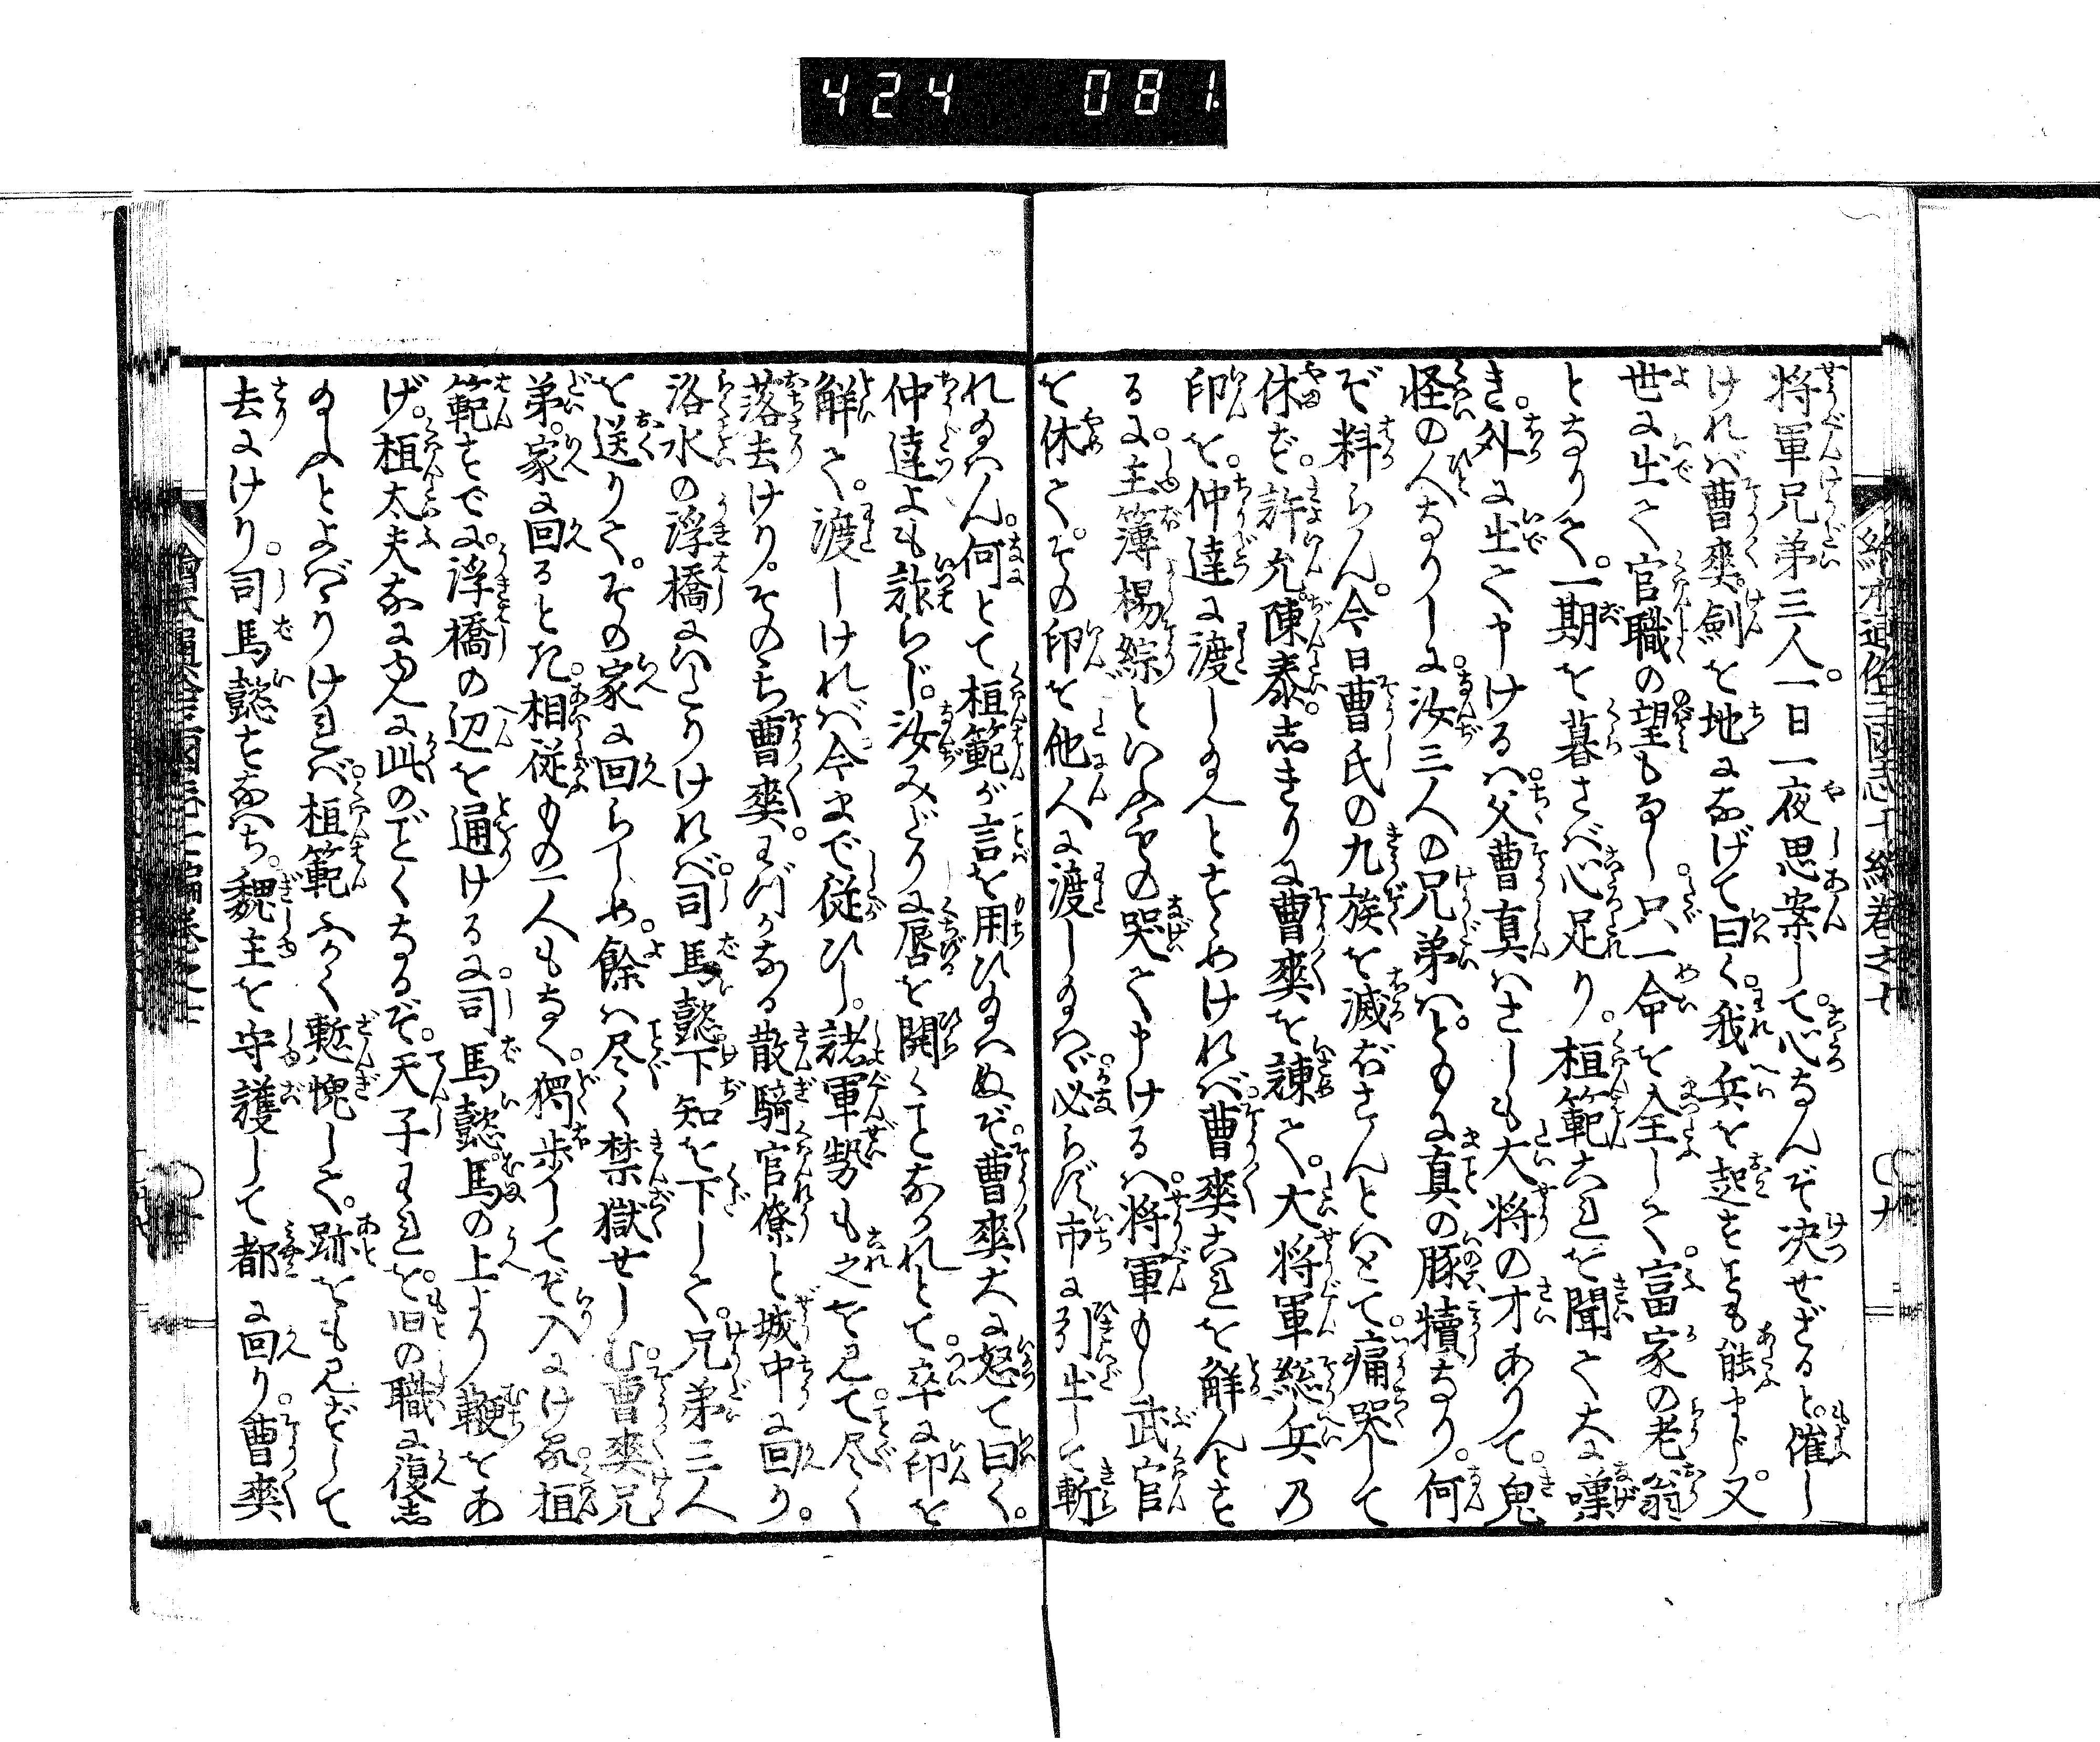 424 081
絵本通俗三国志七編巻之七 〇九
将軍兄弟三人。一日一夜思案して。心なんぞ決せざると。催し
ければ曹爽。剣を地になげて曰く。我兵を起すとも能まじ。又
世に出て官職の望もなし。只一命を全して。富家の老翁
となりて。一期を暮さば心足り。桓範これを聞て大に嘆
き。外に出て申けるは。父曹真はさしも大将の才ありて。鬼
怪の人なりしに。汝三人の兄弟は。ともに真の豚犢なり。何
ぞ料らん。今日曹氏の九族を滅ぼさんとはとて。痛哭して
休ず。許允。陳泰。志きりに曹爽を諫て。大将軍総兵乃
印を。仲達に渡し給へとすゝめければ。曹爽これを解んとす
るに。主簿楊綜といふもの哭て申けるは。将軍もし武官
を休て。その印を他人に渡し給はゞ。必らず市に引出して斬
れ給はん。何とて桓範が言を用ひ給はぬぞ。曹爽大に怒て曰く。
仲達よも詐らじ。汝みだりに唇を開くことなかれとて。卒に印を
解て。渡しければ今まで従ひし。諸軍勢も之を見て。尽く
落去けり。そのゝち曹爽。わづかなる散騎官僚と城中に回り。
洛水の浮橋にいたりければ。司馬懿。下知を下して。兄弟三人
を送りて。その家に回らしめ。餘は尽く禁獄せしむ。曹爽兄
弟。家に回るとき。相従もの一人もなく。獨歩してぞ入にける。桓
範すでに。浮橋の辺を通けるに。司馬懿。馬の上より鞭をあ
げ。桓太夫なに由に此のごとくなるぞ。天子われを。旧の職に復志
給ふとよばゝりければ。桓範ふかく慙愧して。跡をも見ずして
去にけり。司馬懿すなはち。魏主を守護して都に回り。曹爽